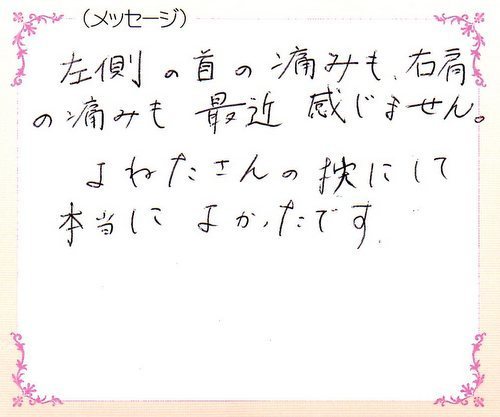 （メッセージ）
左側の首の痛みも、右肩
の痛みも 最近 感じません。
よねたさんの枕にして
本当に よかったです.